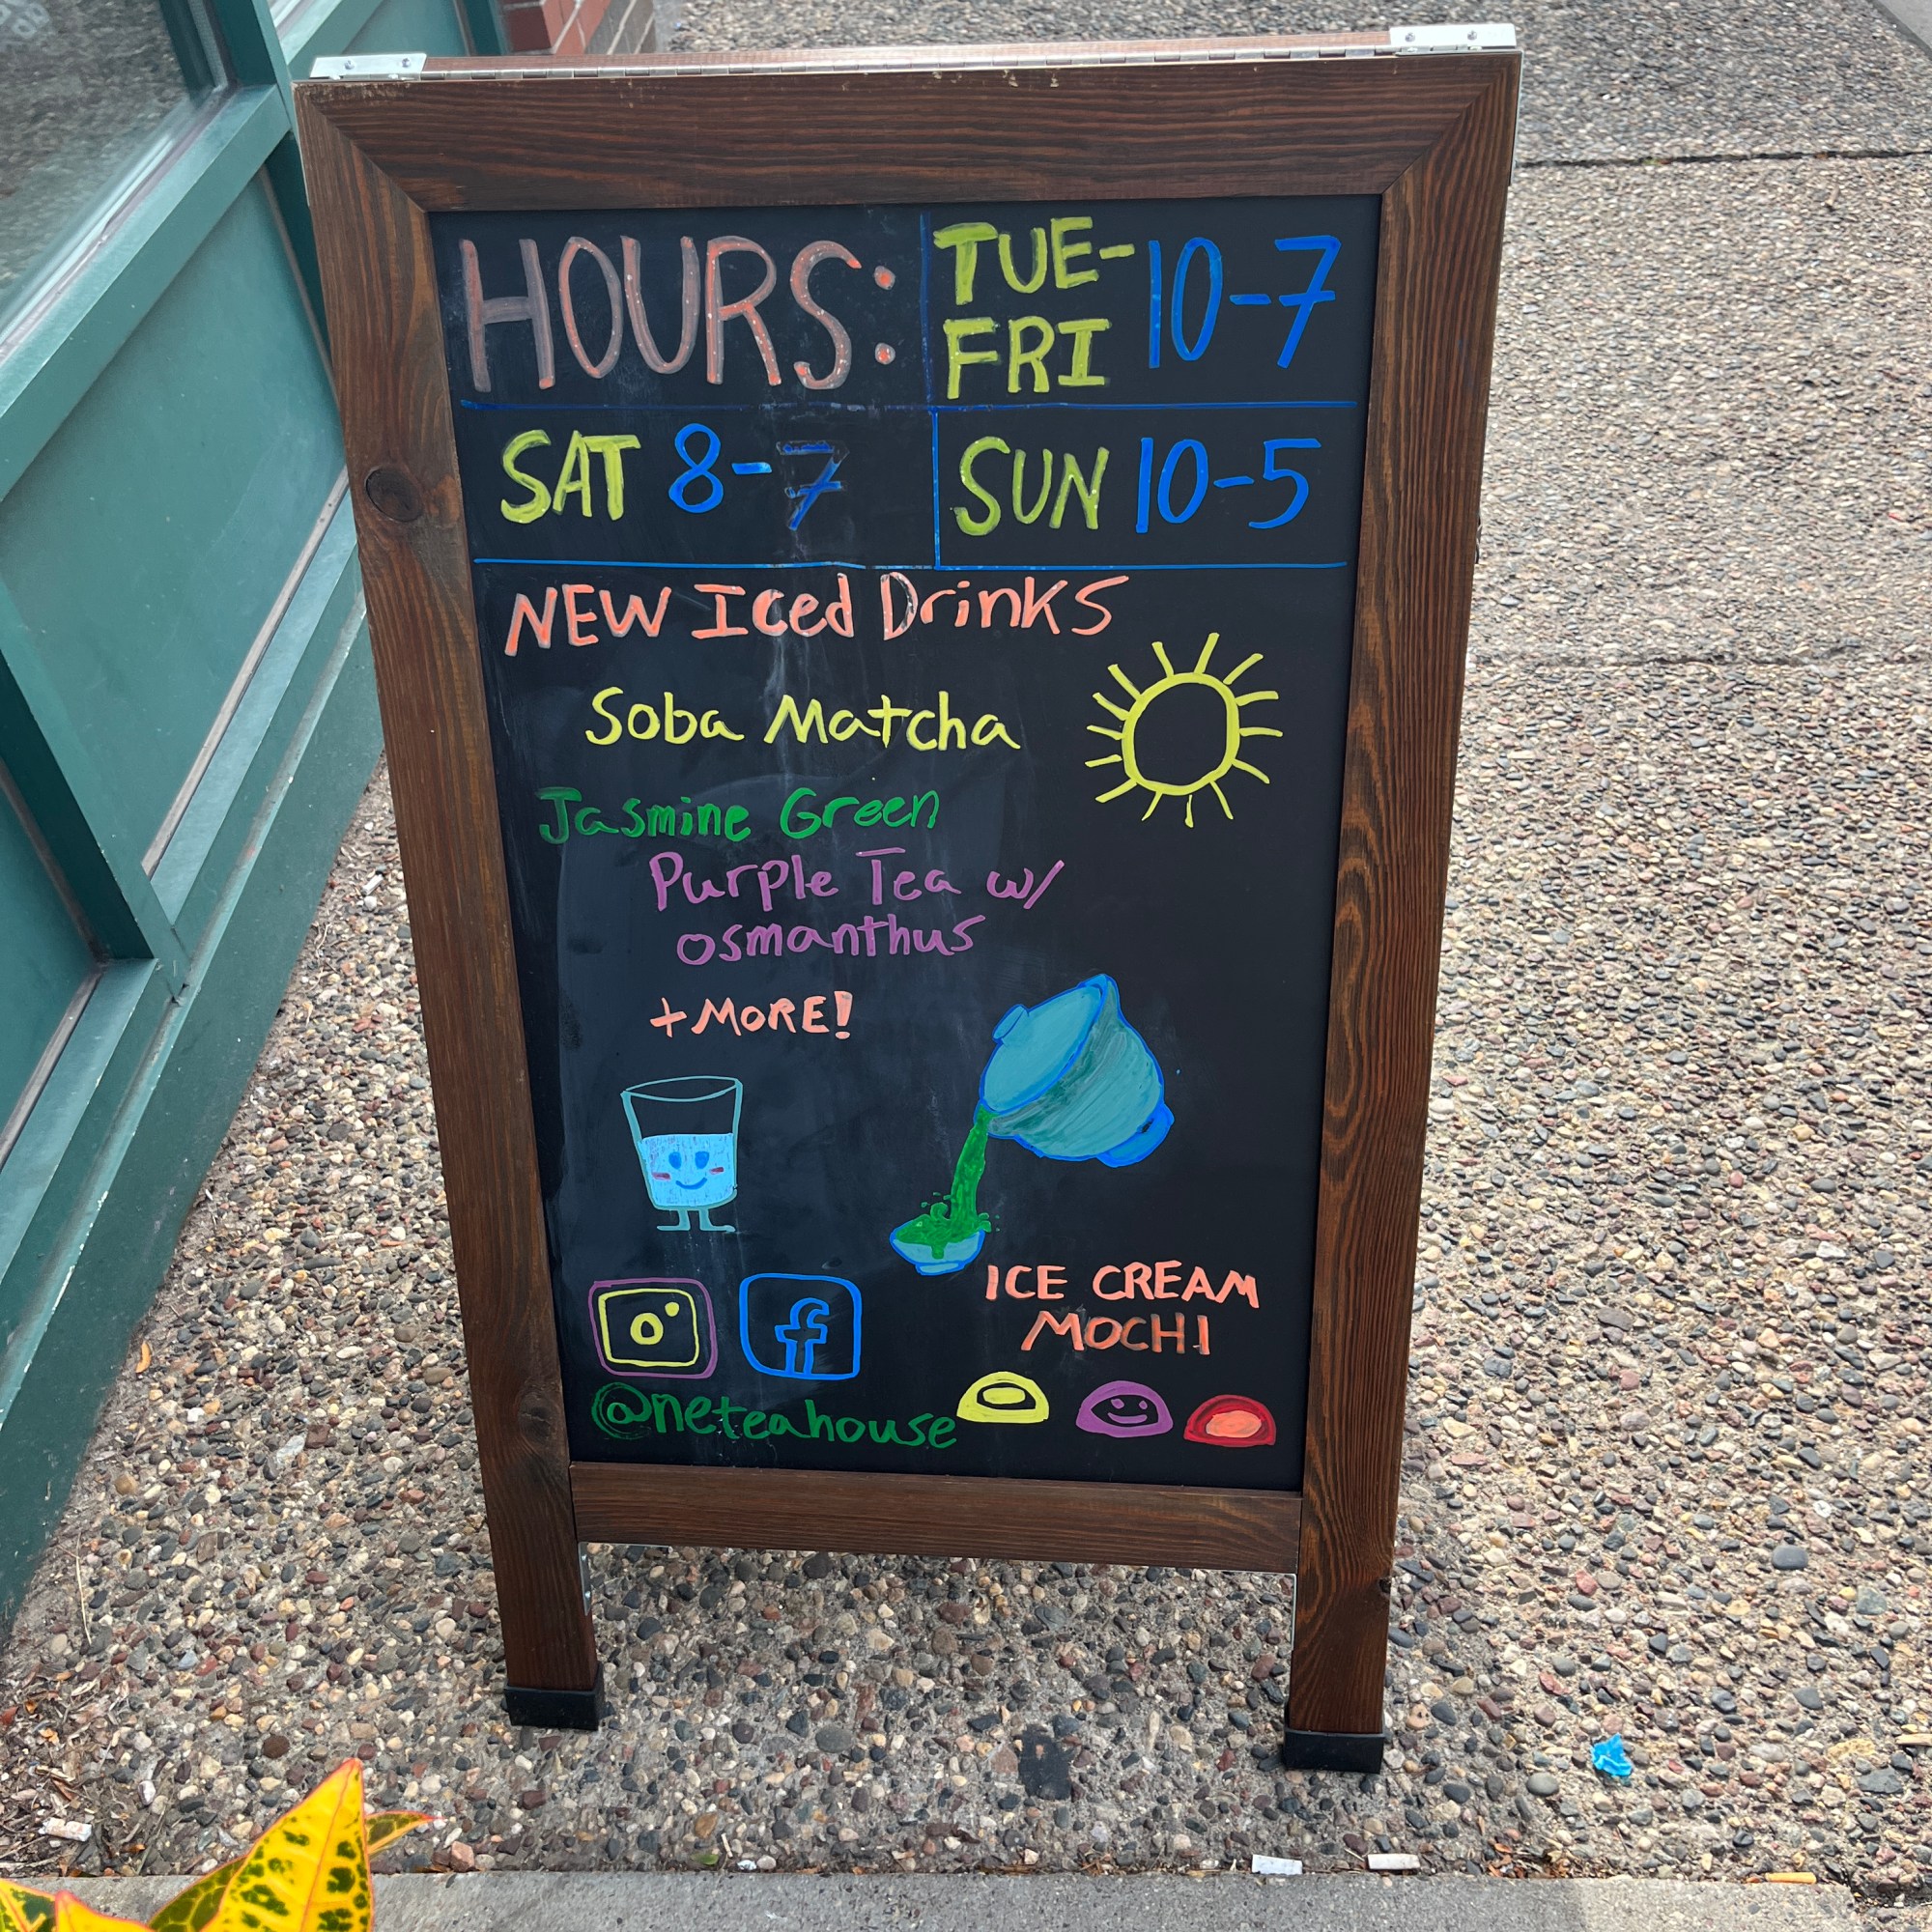 HOURS:
TUE-
FRI
10-7
SAT 8-7
SUN 10-5
NEW Iced Drinks
Soba Matcha
Jasmine Green
Purple Tea w/
osmanthus
+MORE!
ICE CREAM
MOCHI
@neteahouse